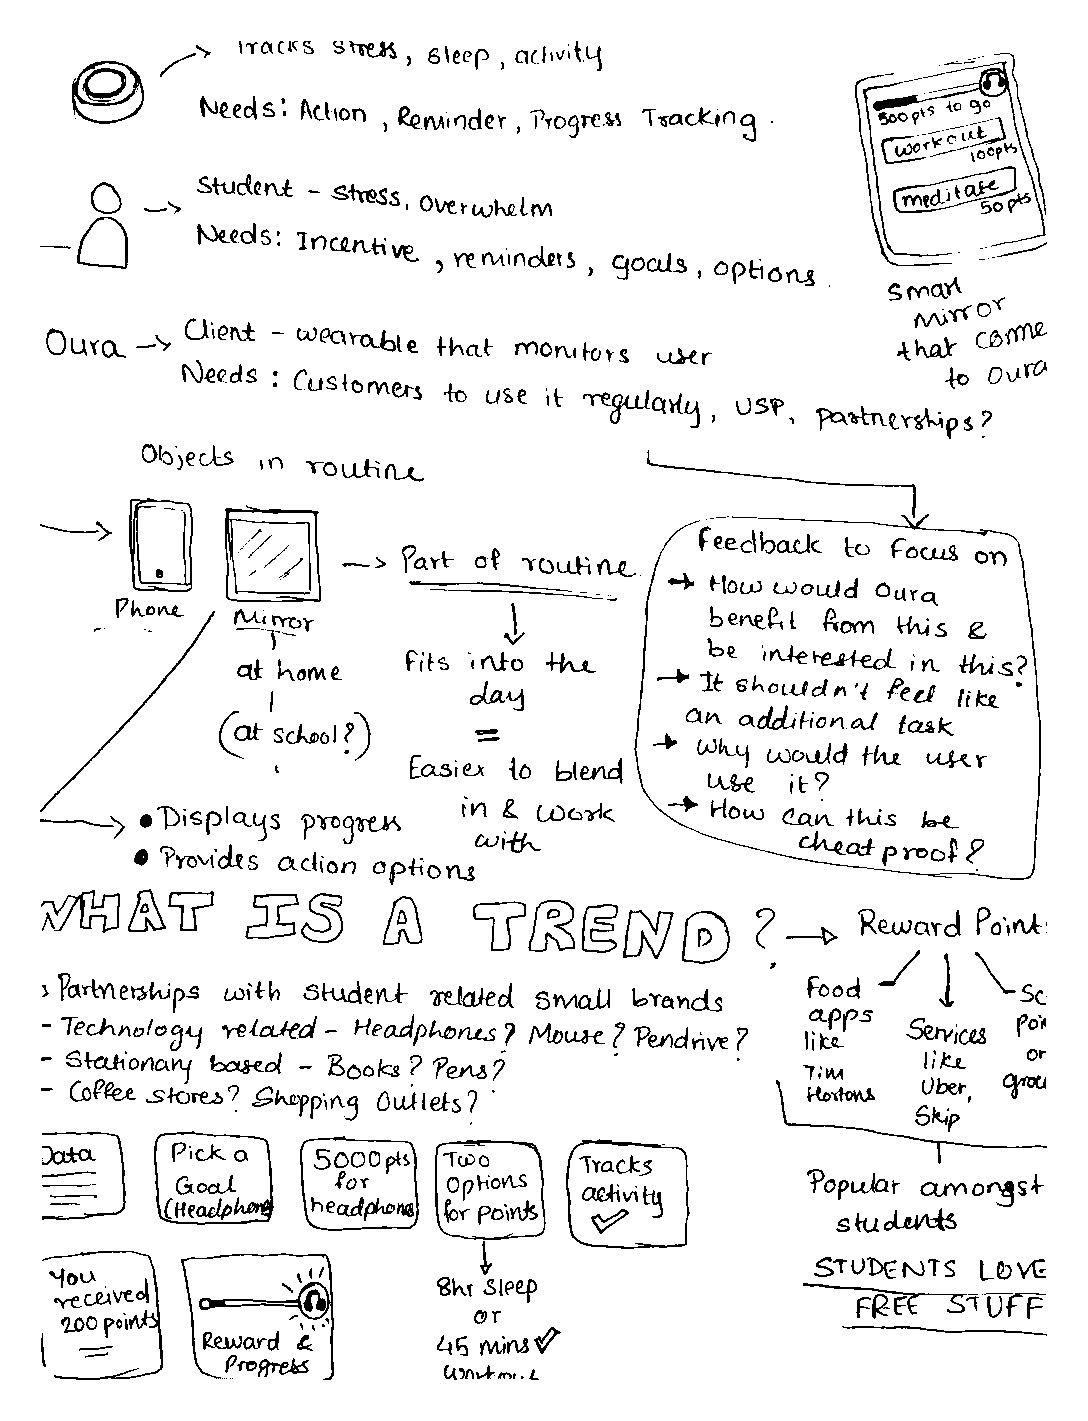 Tracks stress, sleep, activity
Needs: Action, Reminder, Progress Tracking.
500pts to go
workout
100pts
meditate
50pts
Smart
mirror
that come
to Oura
Student - stress, overwhelm
Needs: Incentive, reminders, goals, options.
Oura → Client - wearable that monitors user
Needs: Customers to use it regularly, USP, partnerships?
Objects in routine
Phone
Mirror
at home
(at school?)
→ Part of routine
fits into the
day
=
Easier to blend
in & work
with
• Displays progress
• Provides action options
Feedback to focus on
→ How would Oura
benefit from this &
be interested in this?
→ It shouldn't feel like
an additional task
→ Why would the user
use it?
→ How can this be
cheat proof?
WHAT IS A TREND? → Reward Points
Food
apps
like
Tim
Hortons
Services
like
Uber,
Skip
or
Popular amongst
students
STUDENTS LOVE
FREE STUFF
Partnerships with student related small brands
- Technology related - Headphones? Mouse? Pendrive?
- Stationary based - Books? Pens?
- Coffee stores? Shopping Outlets?
Data
Pick a
Goal
(Headphone
5000pts
for
headphones
Two
Options
for points
8hr sleep
or
45 mins ✓
workout
Tracks
activity
✓
You
received
200 points
Reward &
Progress